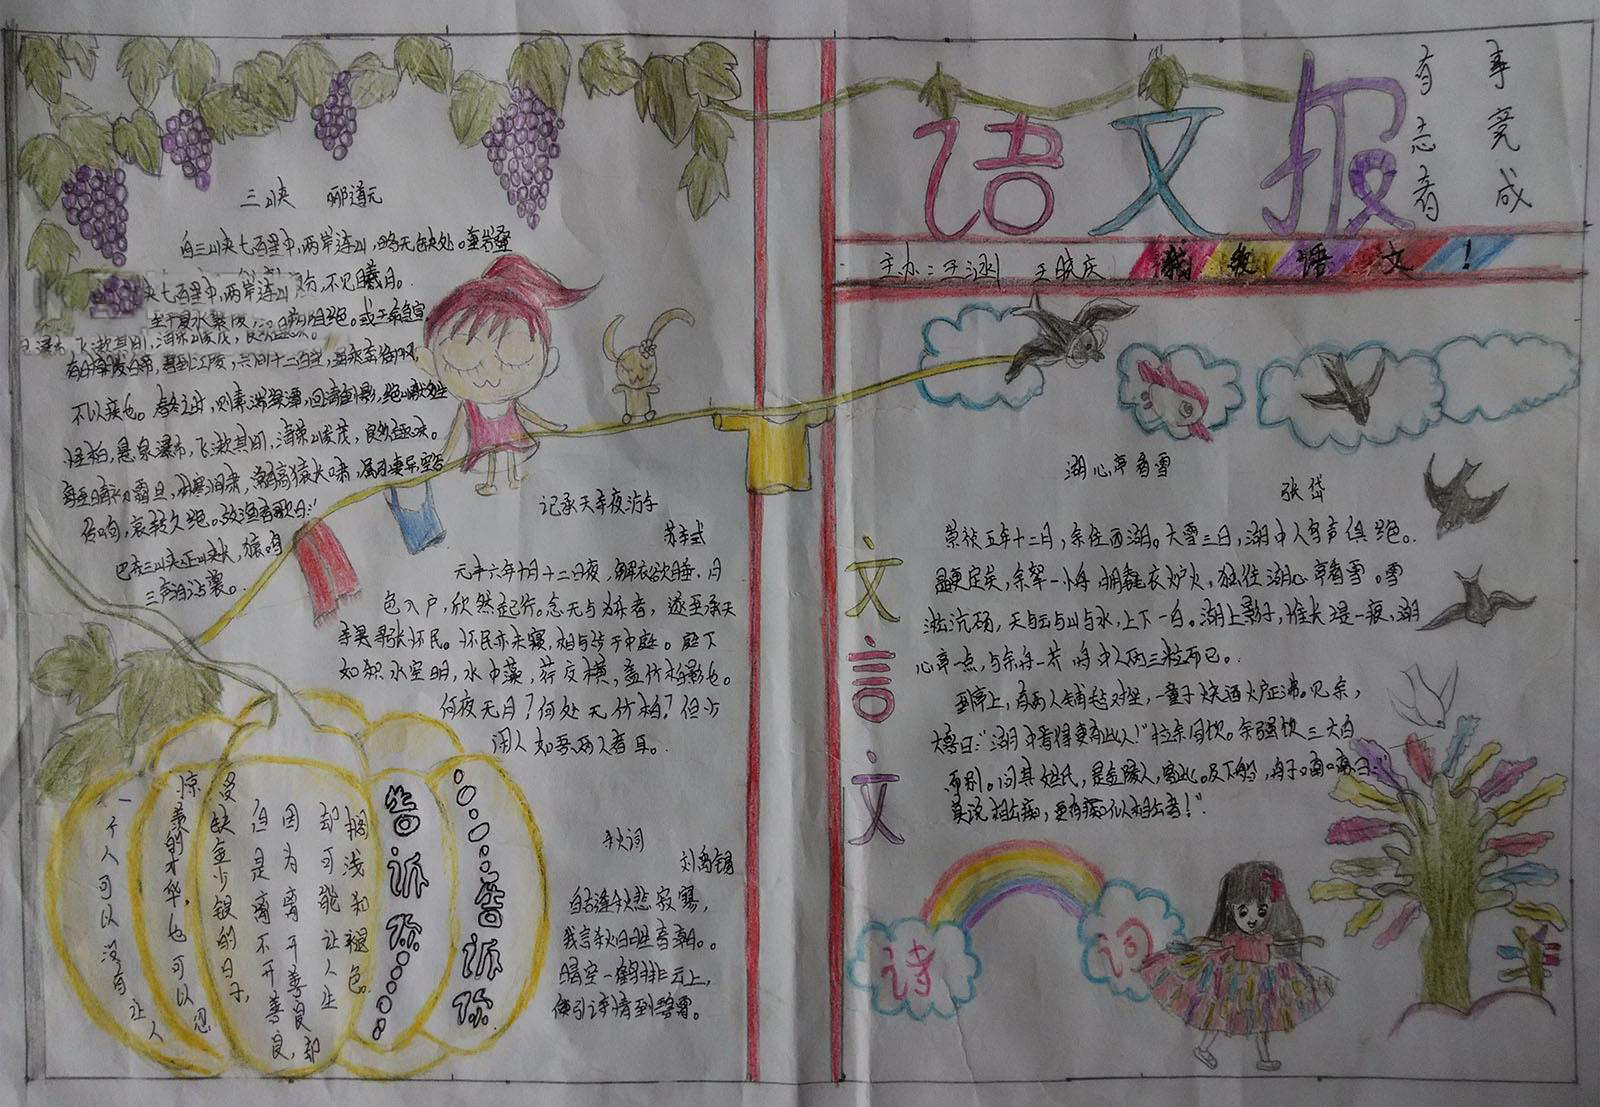 语文报
有志者
事竟成
主办：王泓 王晓庆
我爱语文！
三峡 郦道元
自三峡七百里中，两岸连山，略无缺处。重岩叠
峡七百里中，两岸连山
不见曦月。
至于夏水襄陵，
或王命急宣
有时朝发白帝，暮到江陵，其间千二百里，虽乘奔御风，
不以疾也。春冬之时，则素湍绿潭，回清倒影，绝巘多生
怪柏，悬泉瀑布，飞漱其间，清荣峻茂，良多趣味。
每至晴初霜旦，林寒涧肃，常有高猿长啸，属引凄异，空谷
传响，哀转久绝。故渔者歌曰：
巴东三峡巫峡长，猿鸣
三声泪沾裳。
记承天寺夜游
苏轼
元丰六年十月十二日夜，解衣欲睡，月
色入户，欣然起行。念无与为乐者，遂至承天
寺寻张怀民。怀民亦未寝，相与步于中庭。庭下
如积水空明，水中藻、荇交横，盖竹柏影也。
何夜无月？何处无竹柏？但少
闲人如吾两人者耳。
秋词
刘禹锡
自古逢秋悲寂寥，
我言秋日胜春朝。
晴空一鹤排云上，
便引诗情到碧霄。
告诉你
告诉你
一个人可以没有让人
惊羡的才华，也可以忍
受缺金少银的日子，
但是离不开善良，
因为离开善良，却
却可能让人生
搁浅和褪色。
文言文
湖心亭看雪
张岱
崇祯五年十二月，余住西湖。大雪三日，湖中人鸟声俱绝。
是更定矣，余拏一小舟，拥毳衣炉火，独往湖心亭看雪。雾
淞沆砀，天与云与山与水，上下一白。湖上影子，惟长堤一痕，湖
心亭一点，与余舟一芥，舟中人两三粒而已。
到亭上，有两人铺毡对坐，一童子烧酒炉正沸。见余，
大喜曰：“湖中焉得更有此人！”拉余同饮。余强饮三大白
而别。问其姓氏，是金陵人，客此。及下船，舟子喃喃曰：“
莫说相公痴，更有痴似相公者！”
诗
词